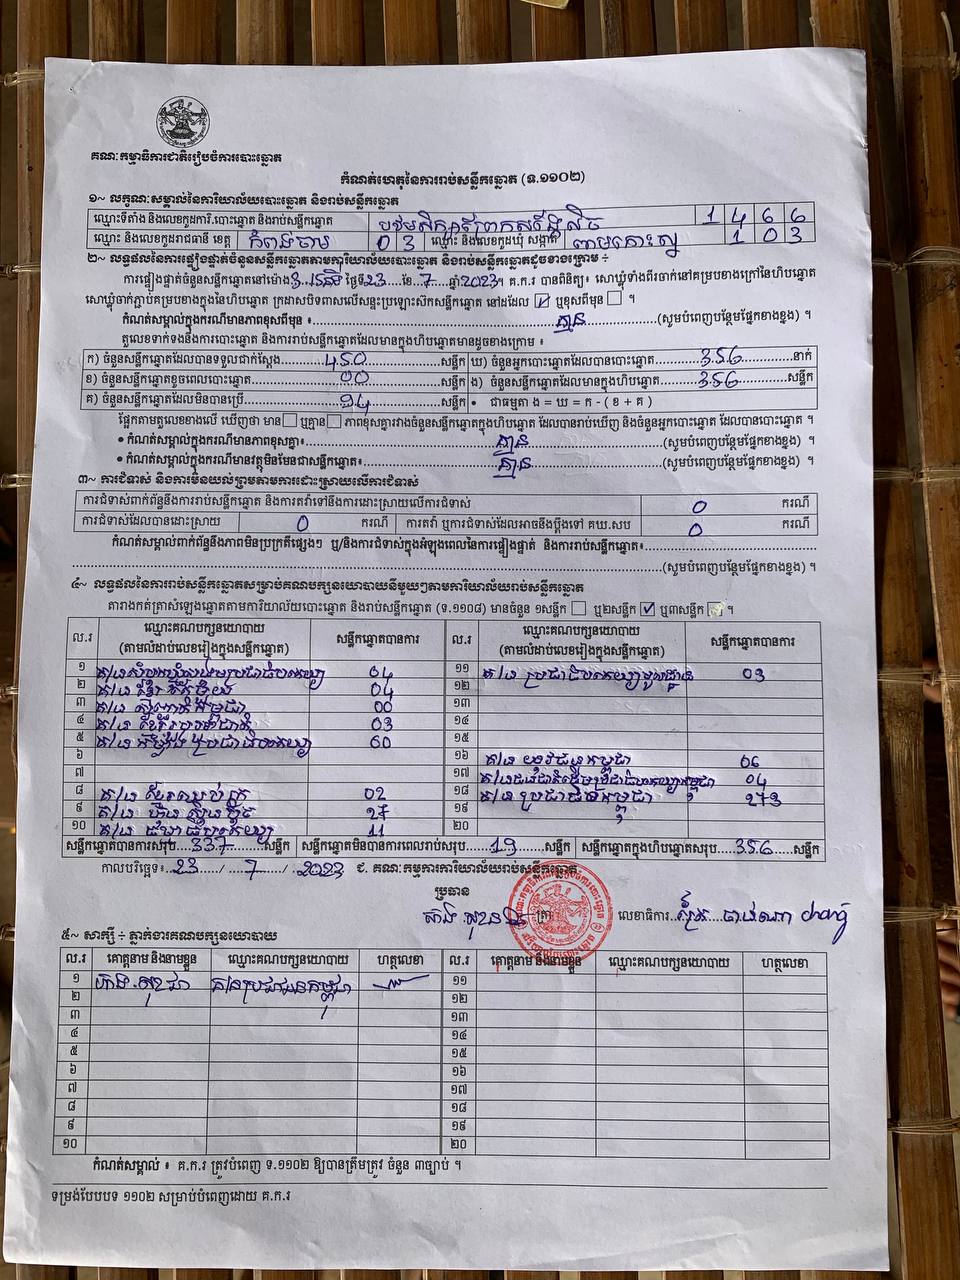 គណៈកម្មាធិការជាតិរៀបចំការបោះឆ្នោត
កំណត់ហេតុនៃការរាប់សន្លឹកឆ្នោត (ទ.១១០២)
១~ លក្ខណៈសម្គាល់នៃការិយាល័យបោះឆ្នោត និងរាប់សន្លឹកឆ្នោត
ឈ្មោះទីតាំង និងលេខកូដការិ.បោះឆ្នោត និងរាប់សន្លឹកឆ្នោត 1 4 6 6
ឈ្មោះ និងលេខកូដរាជធានី ខេត្ត កំពង់ចាម 0 3 ឈ្មោះ និងលេខកូដឃុំ សង្កាត់ ពាមកោះស្នា 1 0 3
២~ លទ្ធផលនៃការផ្ទៀងផ្ទាត់ចំនួនសន្លឹកឆ្នោតតាមការិយាល័យបោះឆ្នោត និងរាប់សន្លឹកឆ្នោតដូចខាងក្រោម ÷
ការផ្ទៀងផ្ទាត់ចំនួនសន្លឹកឆ្នោតនៅម៉ោង ថ្ងៃទី23 ខែ 7 ឆ្នាំ2023។ គ.ក.រ បានពិនិត្យ៖ សោឃ្លុំទាំងពីរចាក់នៅគម្របខាងក្រៅនៃហិបឆ្នោត
សោឃ្លុំចាក់ភ្ជាប់គម្របខាងក្នុងនៃហិបឆ្នោត ក្រដាសបិទពាសលើសន្ទះប្រឡោះសិកសន្លឹកឆ្នោត នៅដដែល ☑ ឬខុសពីមុន ☐ ។
កំណត់សម្គាល់ក្នុងករណីមានភាពខុសពីមុន ៖ គ្មាន (សូមបំពេញបន្ថែមផ្នែកខាងខ្នង) ។
តួលេខទាក់ទងនឹងការបោះឆ្នោត និងការរាប់សន្លឹកឆ្នោតដែលមានក្នុងហិបឆ្នោតមានដូចខាងក្រោម ៖
ក) ចំនួនសន្លឹកឆ្នោតដែលបានទទួលជាក់ស្តែង 450 សន្លឹក ឃ) ចំនួនអ្នកបោះឆ្នោតដែលបានបោះឆ្នោត 356 នាក់
ខ) ចំនួនសន្លឹកឆ្នោតខូចពេលបោះឆ្នោត 00 សន្លឹក ង) ចំនួនសន្លឹកឆ្នោតដែលមានក្នុងហិបឆ្នោត 356 សន្លឹក
គ) ចំនួនសន្លឹកឆ្នោតដែលមិនបានប្រើ 94 សន្លឹក • ជាធម្មតា ង = ឃ = ក - ( ខ + គ )
ផ្អែកតាមតួលេខខាងលើ ឃើញថា មាន ☐ ឬគ្មាន ☐ ភាពខុសគ្នារវាងចំនួនសន្លឹកឆ្នោតក្នុងហិបឆ្នោត ដែលបានរាប់ឃើញ និងចំនួនអ្នកបោះឆ្នោត ដែលបានបោះឆ្នោត ។
• កំណត់សម្គាល់ក្នុងករណីមានភាពខុសគ្នា៖ គ្មាន (សូមបំពេញបន្ថែមផ្នែកខាងខ្នង) ។
• កំណត់សម្គាល់ក្នុងករណីមានវត្ថុមិនមែនជាសន្លឹកឆ្នោត៖ គ្មាន (សូមបំពេញបន្ថែមផ្នែកខាងខ្នង) ។
៣~ ការជំទាស់ និងការមិនយល់ព្រមតាមការដោះស្រាយលើការជំទាស់
ការជំទាស់ពាក់ព័ន្ធនឹងការរាប់សន្លឹកឆ្នោត និងការតវ៉ាទៅនឹងការដោះស្រាយលើការជំទាស់ 0 ករណី
ការជំទាស់ដែលបានដោះស្រាយ 0 ករណី ការតវ៉ា ឬការជំទាស់ដែលអាចនឹងប្តឹងទៅ គឃ.សប 0 ករណី
កំណត់សម្គាល់ពាក់ព័ន្ធនឹងភាពមិនប្រក្រតីផ្សេងៗ ឬ/និងការជំទាស់ក្នុងអំឡុងពេលនៃការផ្ទៀងផ្ទាត់ និងការរាប់សន្លឹកឆ្នោត៖
(សូមបំពេញបន្ថែមផ្នែកខាងខ្នង) ។
៤~ លទ្ធផលនៃការរាប់សន្លឹកឆ្នោតសម្រាប់គណបក្សនយោបាយនីមួយៗតាមការិយាល័យរាប់សន្លឹកឆ្នោត
តារាងកត់ត្រាសំឡេងឆ្នោតតាមការិយាល័យបោះឆ្នោត និងរាប់សន្លឹកឆ្នោត (ទ.១១០៨) មានចំនួន ១សន្លឹក ☐ ឬ២សន្លឹក ☑ ឬ៣សន្លឹក ☐ ។
ល.រ ឈ្មោះគណបក្សនយោបាយ (តាមលំដាប់លេខរៀងក្នុងសន្លឹកឆ្នោត) សន្លឹកឆ្នោតបានការ ល.រ ឈ្មោះគណបក្សនយោបាយ (តាមលំដាប់លេខរៀងក្នុងសន្លឹកឆ្នោត) សន្លឹកឆ្នោតបានការ
១ 04 ១១ គ/ប ប្រជាធិបតេយ្យមូលដ្ឋាន 03
២ 04 ១២
៣ 00 ១៣
៤ គ/ប ខ្មែររួបរួមជាតិ 03 ១៤
៥ គ/ប កម្លាំងប្រជាធិបតេយ្យ 60 ១៥
៦ ១៦ គ/ប យុវជនកម្ពុជា 06
៧ ១៧ 04
៨ គ/ប ខ្មែរឈប់ក្រ 02 ១៨ គ/ប ប្រជាជនកម្ពុជា 213
៩ គ/ប ហ្វ៊ុនស៊ិនប៉ិច 27 ១៩
១០ 11 ២០
សន្លឹកឆ្នោតបានការសរុប 337 សន្លឹក សន្លឹកឆ្នោតមិនបានការពេលរាប់សរុប 19 សន្លឹក សន្លឹកឆ្នោតក្នុងហិបឆ្នោតសរុប 356 សន្លឹក
កាលបរិច្ឆេទ៖ 23 / 7 / 2023 ជ. គណៈកម្មការការិយាល័យរាប់សន្លឹកឆ្នោត
ប្រធាន
ត្រា លេខាធិការ
៥~ សាក្សី ÷ ភ្នាក់ងារគណបក្សនយោបាយ
ល.រ គោត្តនាម និងនាមខ្លួន ឈ្មោះគណបក្សនយោបាយ ហត្ថលេខា ល.រ គោត្តនាម និងនាមខ្លួន ឈ្មោះគណបក្សនយោបាយ ហត្ថលេខា
១ គ/បប្រជាជនកម្ពុជា ១១
២ ១២
៣ ១៣
៤ ១៤
៥ ១៥
៦ ១៦
៧ ១៧
៨ ១៨
៩ ១៩
១០ ២០
កំណត់សម្គាល់ ៖ គ.ក.រ ត្រូវបំពេញ ទ.១១០២ ឱ្យបានត្រឹមត្រូវ ចំនួន ៣ច្បាប់ ។
ទម្រង់បែបបទ ១១០២ សម្រាប់បំពេញដោយ គ.ក.រ